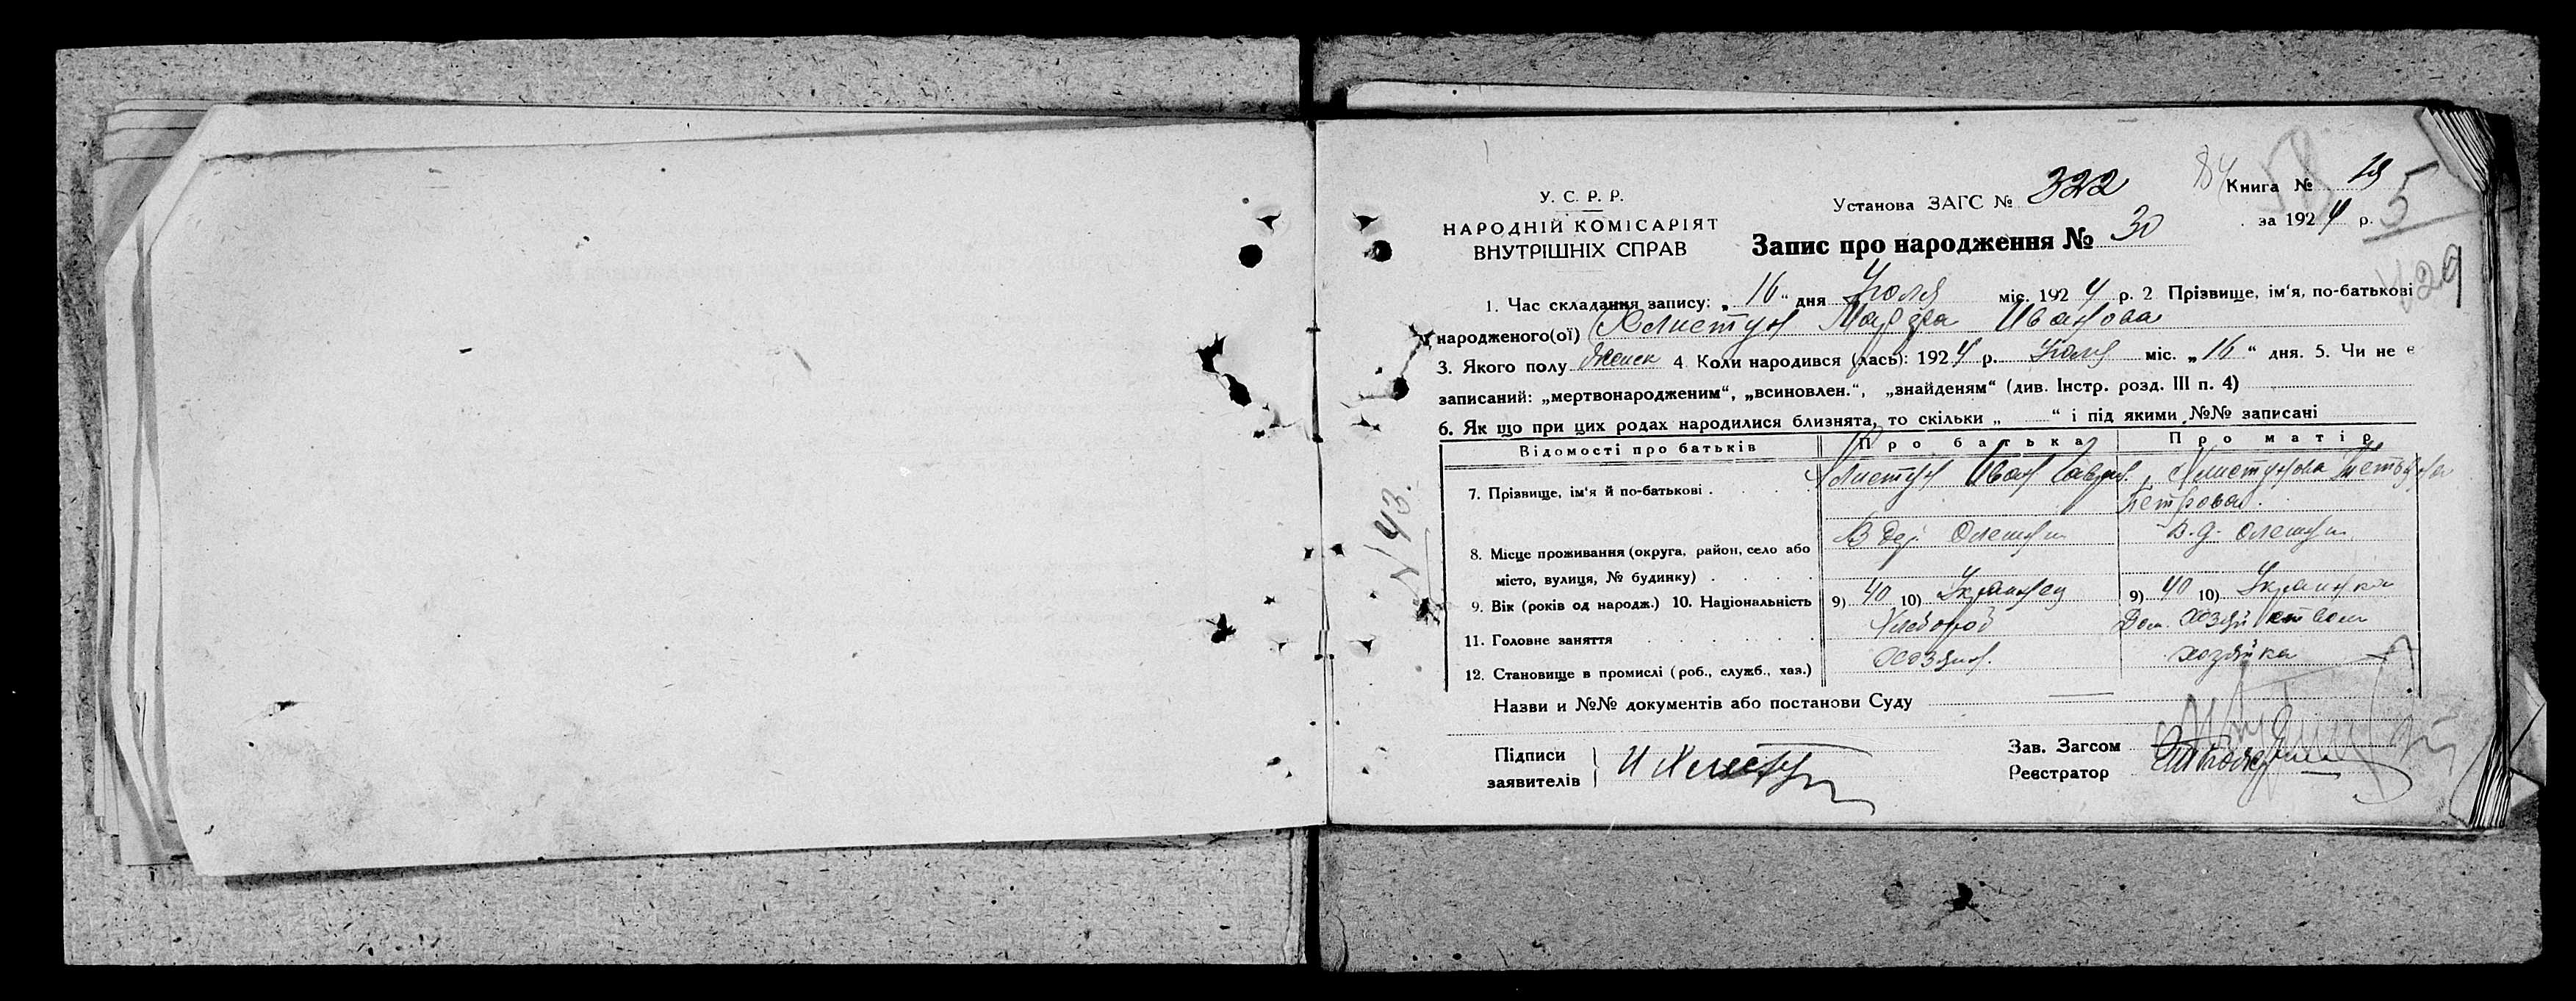 У. С. Р. Р.
НАРОДНІЙ КОМІСАРІЯТ
ВНУТРІШНІХ СПРАВ
Установа ЗАГС № 322
Книга №
за 1924 р.
5
Запис про народження № 30
29
1. Час складання запису: „16“ дня Июля міс. 1924 р. 2 Прізвище, ім'я, по-батькові
народженого(ої) Хлистун Иванова
3. Якого полу женск 4. Коли народився (лась): 1924 р. Июля міс. „16“ дня. 5. Чи не є
записаний: „мертвонародженим“, „всиновлен.“, „знайденям“ (див. Інстр. розд. III п. 4)
6. Як що при цих родах народилися близнята, то скільки „ “ і під якими №№ записані
Відомості про батьків Про батька Про матір
7. Прізвище, ім'я й по-батькові . Хлистун Иван Гаврил. Хлистунова
Петрова.
8. Місце проживання (округа, район, село або В дер. В. д.
місто, вулиця, № будинку) .
9. Вік (років од народж.) 10. Національність 9) 40 10) Украинец 9) 40 10) Украинка
11. Головне заняття Хлебороб Дом. хозяйством
12. Становище в промислі (роб., служб., хаз.) хозяин. хозяйка
N 43.
Назви и №№ документів або постанови Суду
Підписи
заявителів
И Хлистун
Зав. Загсом
Реєстратор